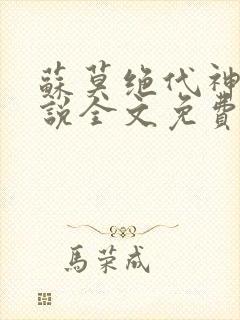 蘇莫绝代神
說全文免費
馬荣成